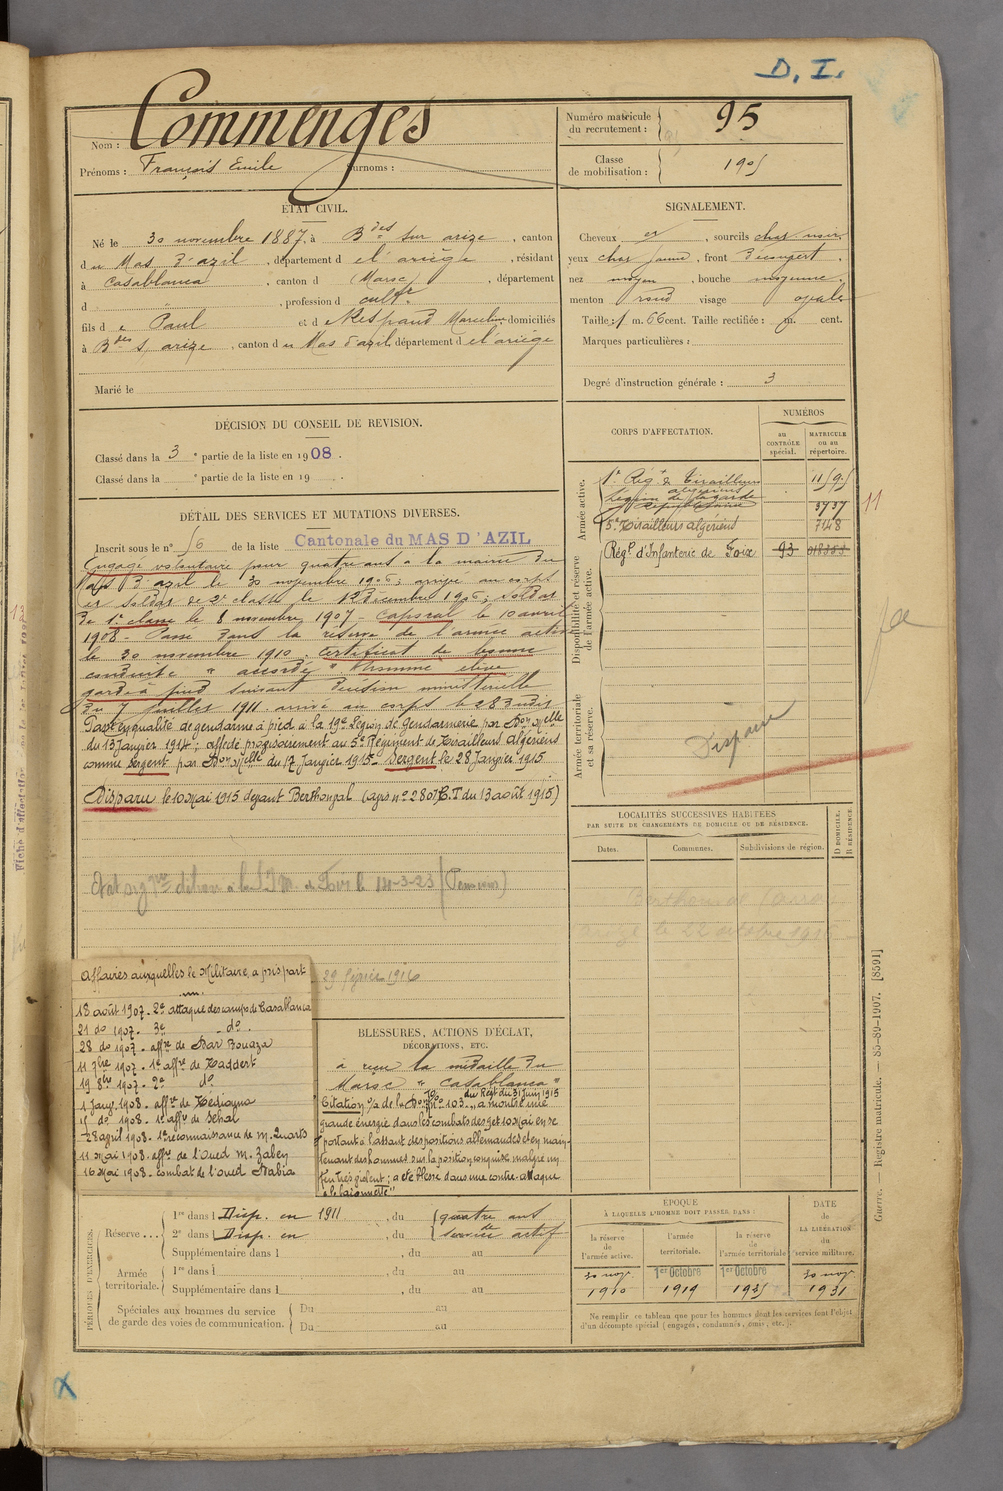 D. I.
Nom : Commenges
Prénoms : François Emile Surnoms :
Numéro matricule du recrutement : 95
Classe de mobilisation : 1905
ÉTAT CIVIL.
Né le 30 novembre 1887, à Bdes sur arize, canton
du Mas d'azil, département de l'ariège, résidant
à Casablanca, canton d (Maroc), département
d , profession d cultr.
fils de Paul et de Respaud Marceline domiciliés
à Bdes s/ arize, canton du Mas d'azil, département de l'ariège
Marié le
SIGNALEMENT.
Cheveux , sourcils chat. noir,
yeux chat. jaune, front découvert,
nez moyen, bouche moyenne,
menton rond visage ovale
Taille : 1 m. 66 cent. Taille rectifiée : m. cent.
Marques particulières :
Degré d'instruction générale : 3
DÉCISION DU CONSEIL DE REVISION.
Classé dans la 3e partie de la liste en 1908.
Classé dans la e partie de la liste en 19 .
DÉTAIL DES SERVICES ET MUTATIONS DIVERSES.
Inscrit sous le n° 56 de la liste Cantonale du MAS D'AZIL
Engagé volontaire pour quatre ans à la mairie du
Mas d'azil le 30 novembre 1906; arrivé au corps
et soldat de 2e classe le 12 Décembre 1906; soldat
de 1e classe le 8 novembre 1907 - Caporal le 10 avril
1908 - Passé dans la réserve de l'armée active
le 30 novembre 1910; certificat de bonne
conduite "accordé" Nommé élève
garde à pied suivant décision ministérielle
du 7 juillet 1911. arrivé au corps le 28 dudit
Passé en qualité de gendarme à pied à la 19e Légion de Gendarmerie par Don Mlle
du 13 Janvier 1914; affecté provisoirement au 5e Régiment de Tirailleurs Algériens
comme sergent par Don Mlle du 17 Janvier 1915 - Sergent le 28 Janvier 1915
Disparu le 10 Mai 1915 devant Berthonval (avis n° 2807 E.T du 13 août 1915)
le 14-3-23 (Pensions)
29 février 1916
CORPS D'AFFECTATION.
NUMÉROS
au CONTRÔLE spécial.
MATRICULE ou au répertoire.
Armée active.
1r Régt de Tirailleurs algériens
Légion de la garde Républicaine 3737
5e Tirailleurs algériens 748
Disponibilité et réserve de l'armée active.
Régt d'Infanterie de Foix 93
Armée territoriale et sa réserve.
Disparu
11
LOCALITÉS SUCCESSIVES HABITÉES
PAR SUITE DE CHANGEMENTS DE DOMICILE OU DE RÉSIDENCE.
Dates.
Communes.
Subdivisions de région.
D DOMICILE.
R RÉSIDENCE.
Affaires auxquelles le Militaire a pris part
18 août 1907 - 2e attaque des camps de Casablanca
21 do 1907 - 3e do
28 do 1907 - affre de Dar Bouaza
11 7bre 1907 - 1e affre de Taddert
19 8bre 1907 - 2e do
1 janv. 1908 - affre de Mediouna
15 do 1908 - 1e affre de Sehal
28 april 1908 - 1e reconnaissance de M. Quarts
11 Mai 1908 - affre de l'Oued M. Zabey
16 Mai 1908 - combat de l'oued Atabia
BLESSURES, ACTIONS D'ÉCLAT,
DÉCORATIONS, ETC.
a reçu la médaille du
Maroc "Casablanca"
du Régt du 31 Juin 1915
Citation n° 103 - "a montré une
grande énergie dans les combats des 9 et 10 Mai en se
portant à l'assaut des positions allemandes et en main-
tenant des hommes sur la position conquise malgré un
feu très violent; a été blessé dans une contre-attaque
à la baïonnette"
PÉRIODES D'EXERCICES.
Réserve...
1re dans l Disp. en 1911, du quatre ans
2e dans l Disp. en , du service actif
Supplémentaire dans l , du au
Armée territoriale.
1re dans l , du au
Supplémentaire dans l , du au
Spéciales aux hommes du service
de garde des voies de communication.
Du au
Du au
ÉPOQUE
À LAQUELLE L'HOMME DOIT PASSER DANS :
la réserve de l'armée active.
l'armée territoriale.
la réserve de l'armée territoriale
DATE de LA LIBÉRATION du service militaire.
30 nov. 1910
1er Octobre 1919
1er Octobre 1925
30 nov. 1931
Ne remplir ce tableau que pour les hommes dont les services font l'objet
d'un décompte spécial (engagés, condamnés, omis, etc.).
Guerre. — Registre matricule. — 85-89-1907. [8591]